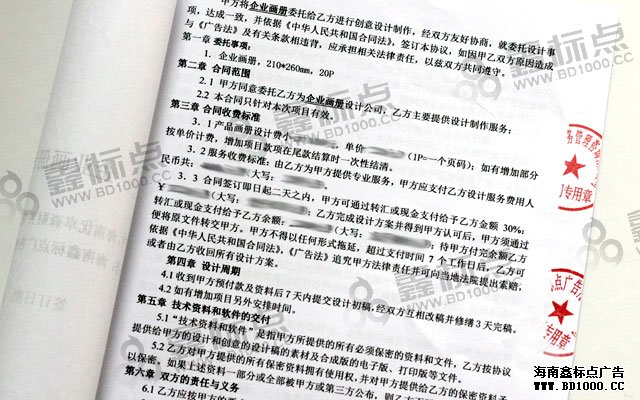 甲方将企业画册委托给乙方进行创意设计制作，经双方友好协商，就委托设计事
项，达成一致，并依据《中华人民共和国合同法》，签订本协议，如因甲乙双方原因造成
与《广告法》及有关条款相违背，应承担相关法律责任，以兹双方共同遵守。
第一章 委托事项：
1. 企业画册，210*260mm，20P
第二章 合同范围
2.1 甲方同意委托乙方为企业画册设计公司，乙方主要提供设计制作服务；
2.2 本合同只针对本次项目有效。
第三章 合同收费标准
3.1 产品画册设计费小 单价 （1P=一个页码）；如有增加部分
按单价计费，增加项目款项在尾款结算时一次性结清。
3.2 服务收费标准：由乙方为甲方提供专业服务，甲方应支付乙方设计服务费用人
民币共： （大写：
3.3 合同签订即日起二天之内，甲方可通过转汇或现金支付给予乙方金额 30%：
￥ （大写： ；乙方完成设计方案并得到甲方认可后，甲方须通过
转汇或现金支付给予乙方余额： （大写： ；待甲方付完全额乙方
便将原文件转交甲方。甲方不得以任何形式拖延，超过支付时间 7 个工作日后，乙方可
依据《中华人民共和国合同法》，《广告法》追究甲方法律责任并可向当地法院提出索赔，
或者由乙方收回所有设计方案。
第四章 设计周期
4.1 收到甲方预付款及资料后 7 天内提交设计初稿，经双方互相改稿并修缮 3 天完稿。
4.2 如有增加项目另外安排时间。
第五章 技术资料和软件的交付
5.1 “技术资料和软件”是指甲方所提供的所有必须保密的资料和文件，乙方按协议
提供给甲方的设计和创意的设计稿的素材及合成版的电子版、打印版等文件。
5.2 乙方对甲方提供的所有保密资料拥有使用权，并对甲方提供给乙方的保密资料予
以保密。如果上述资料一部分或全部被甲方或第三方公布，则乙方
第六章 双方的责任与义务
6.1 乙方应按甲方的要
专用章
点广告
专用章
鑫标点
WWW.BD1000.CC
海南鑫标点广告
WWW.BD1000.CC